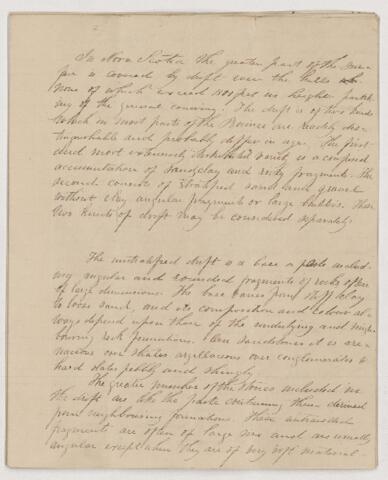 In Nova Scotia the greater part of the sur-
face is covered by drift even the hills
None of which exceed 1100 feet in height partak-
ing of the general covering. The drift is of two kinds
which in most parts of the Province are readily dis-
tinguishable and probably differ in age. The first
and most extensively distributed variety is a confused
accumulation of sand clay and rocky fragments. The
second consists of stratified sand and gravel
without clay angular fragments or large boulders. These
two kinds of drift may be considered separately.
The unstratified drift is a base or paste includ-
ing angular and rounded fragments of rocks often
of large dimensions. The base varies from stiff clay
to loose sand, and its composition and colour al-
ways depend upon those of the underlying and neigh-
bouring rock formations. Over sandstones it is are-
naceous over shales argillaceous over conglomerates &
hard slates pebbly and shingly.
The greater number of the stones included in
the drift are like the paste containing them derived
from neighbouring formations. These untravelled
fragments are often of large size and are usually
angular except when they are of very soft material